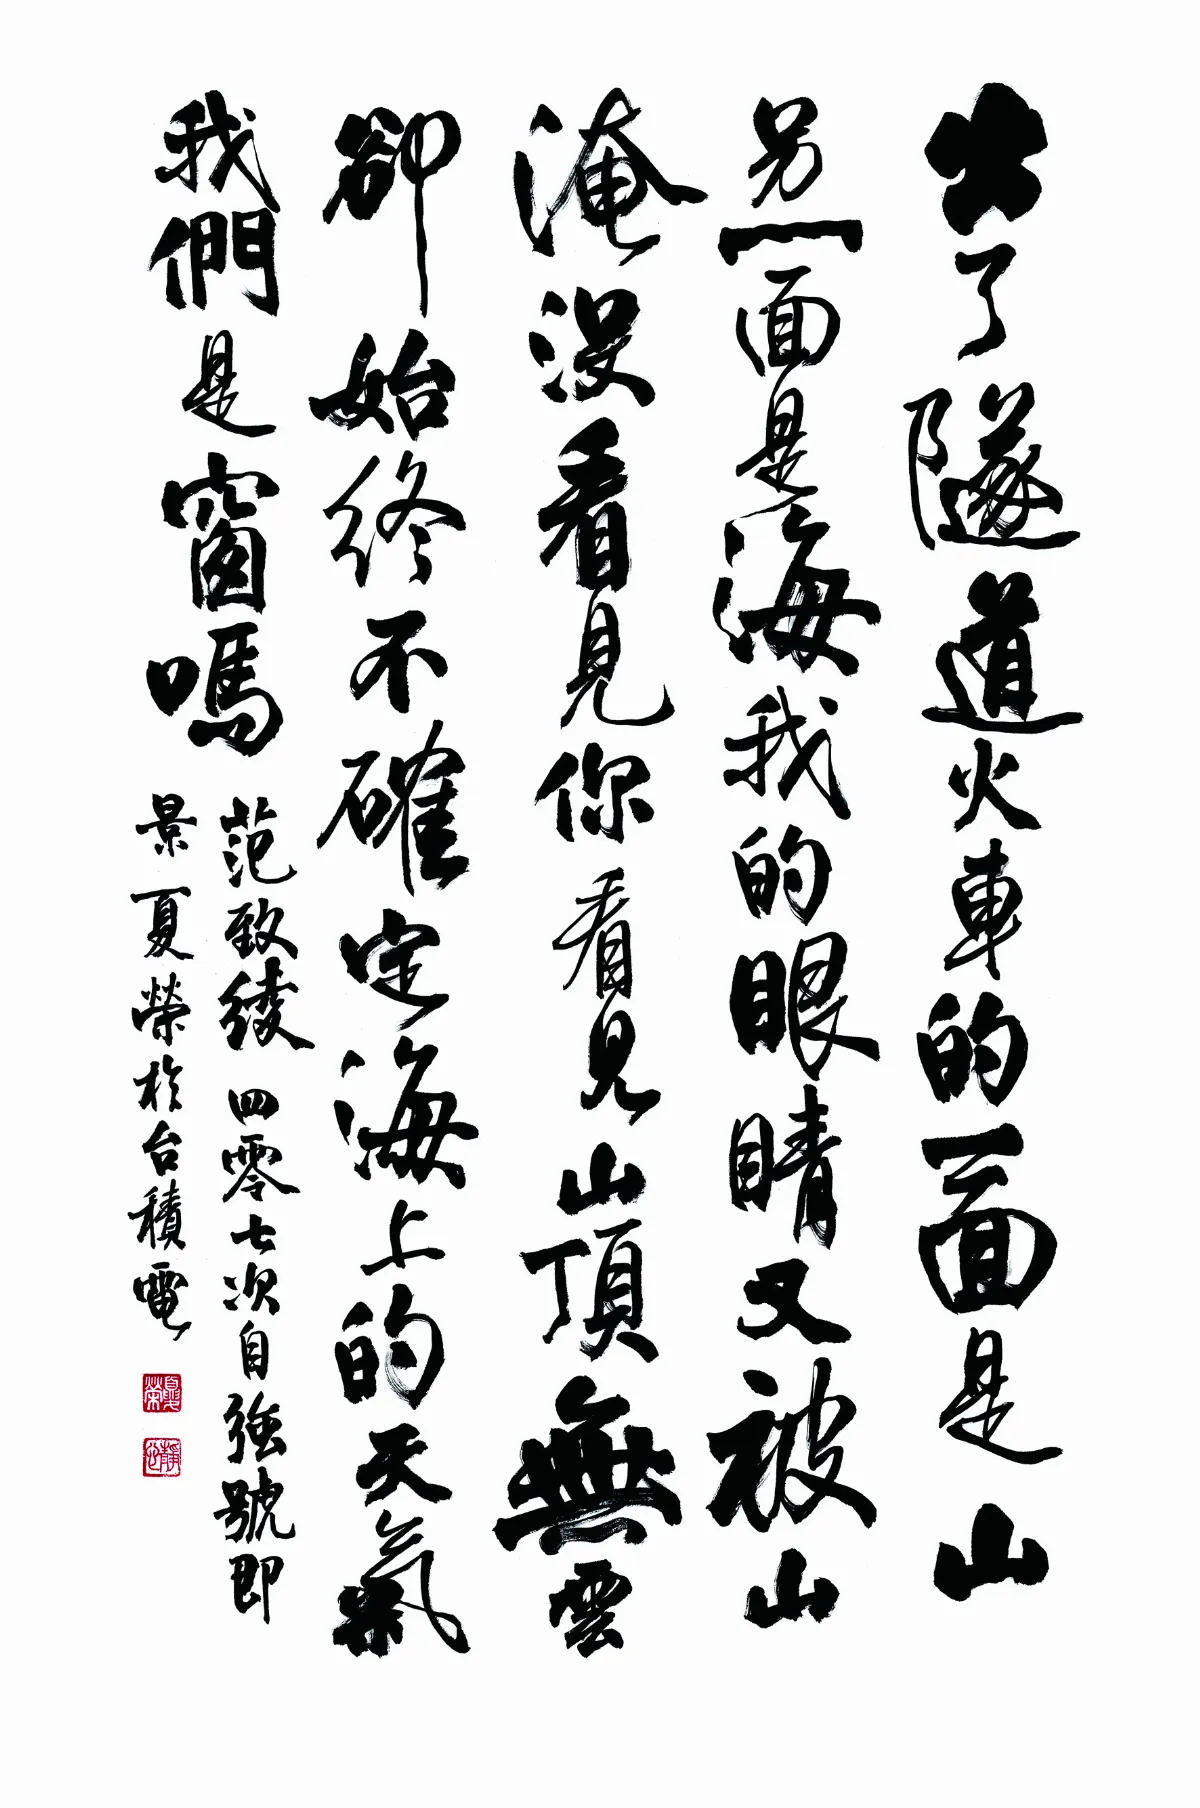 出了隧道火車的一面是山
另一面是海我的眼睛又被山
淹沒看見你看見山頂無雲
卻始終不確定海上的天氣
我們是窗嗎
范致綾 四零七次自強號即
景夏榮於台積電
夏榮
靜心